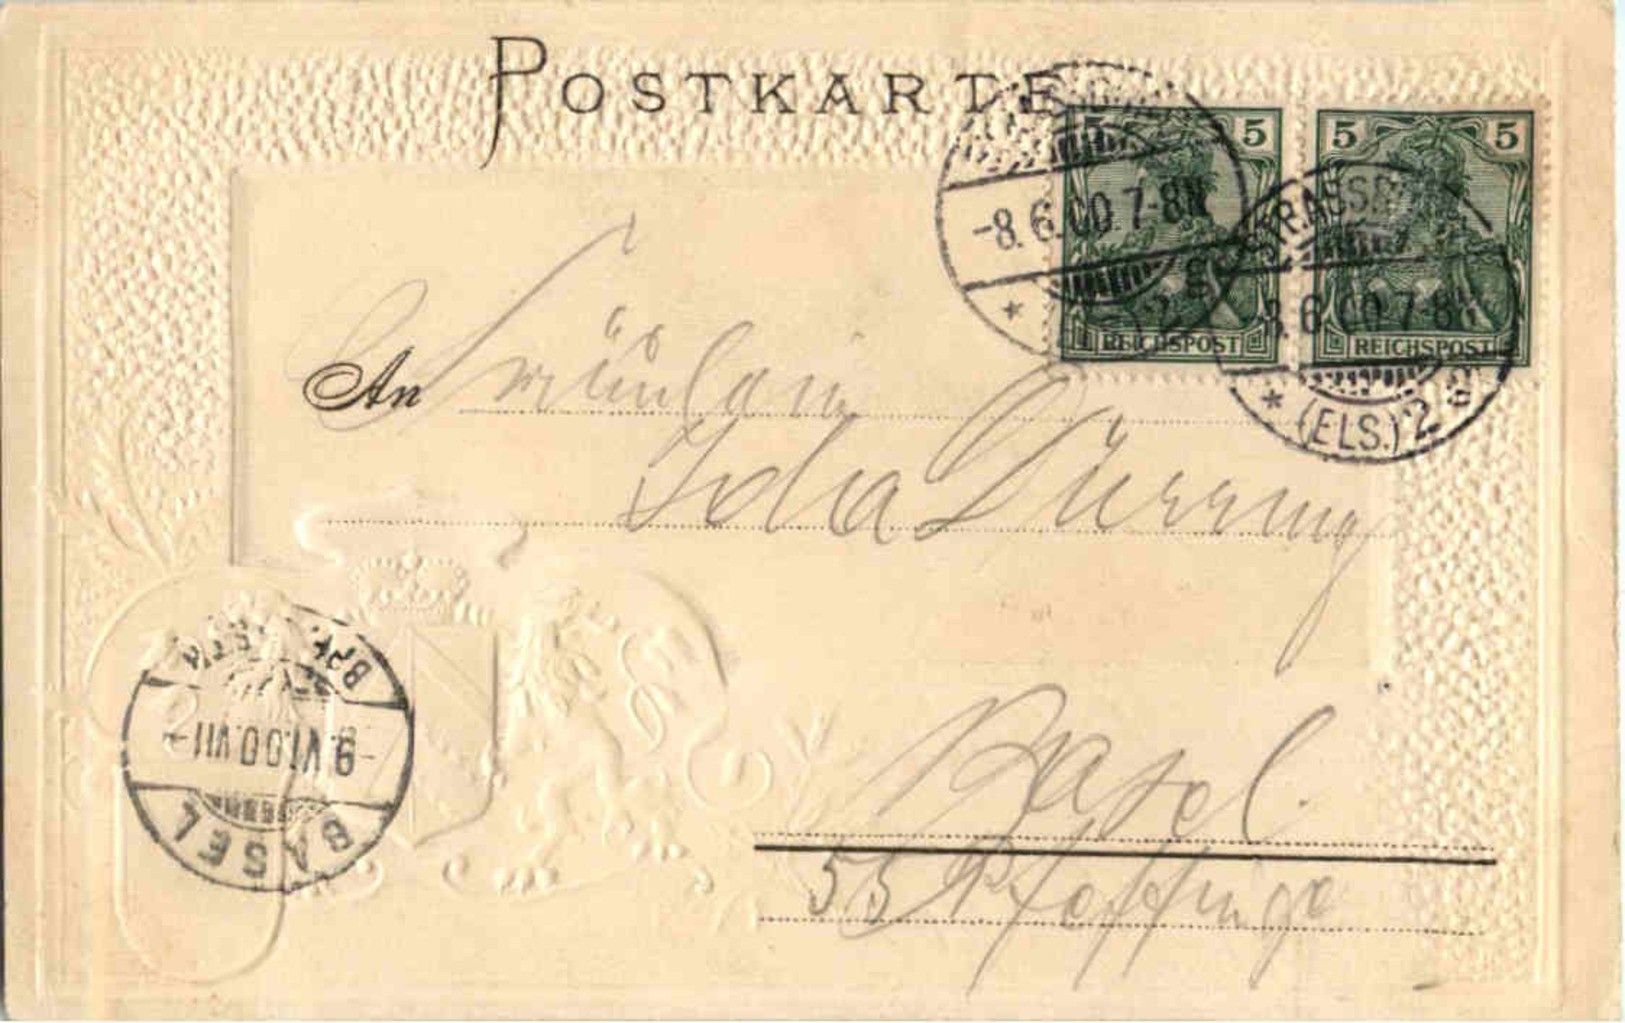 POSTKARTE
5 5 5 5
-8.6.00.7-8N
STRASSBURG
8.6.00.7-8N
REICHSPOST REICHSPOST
* (ELS.) 2
An Fräulein
Dürring
Basel.
55 Pfeffinge
BASEL
-9.VI.00.VII-